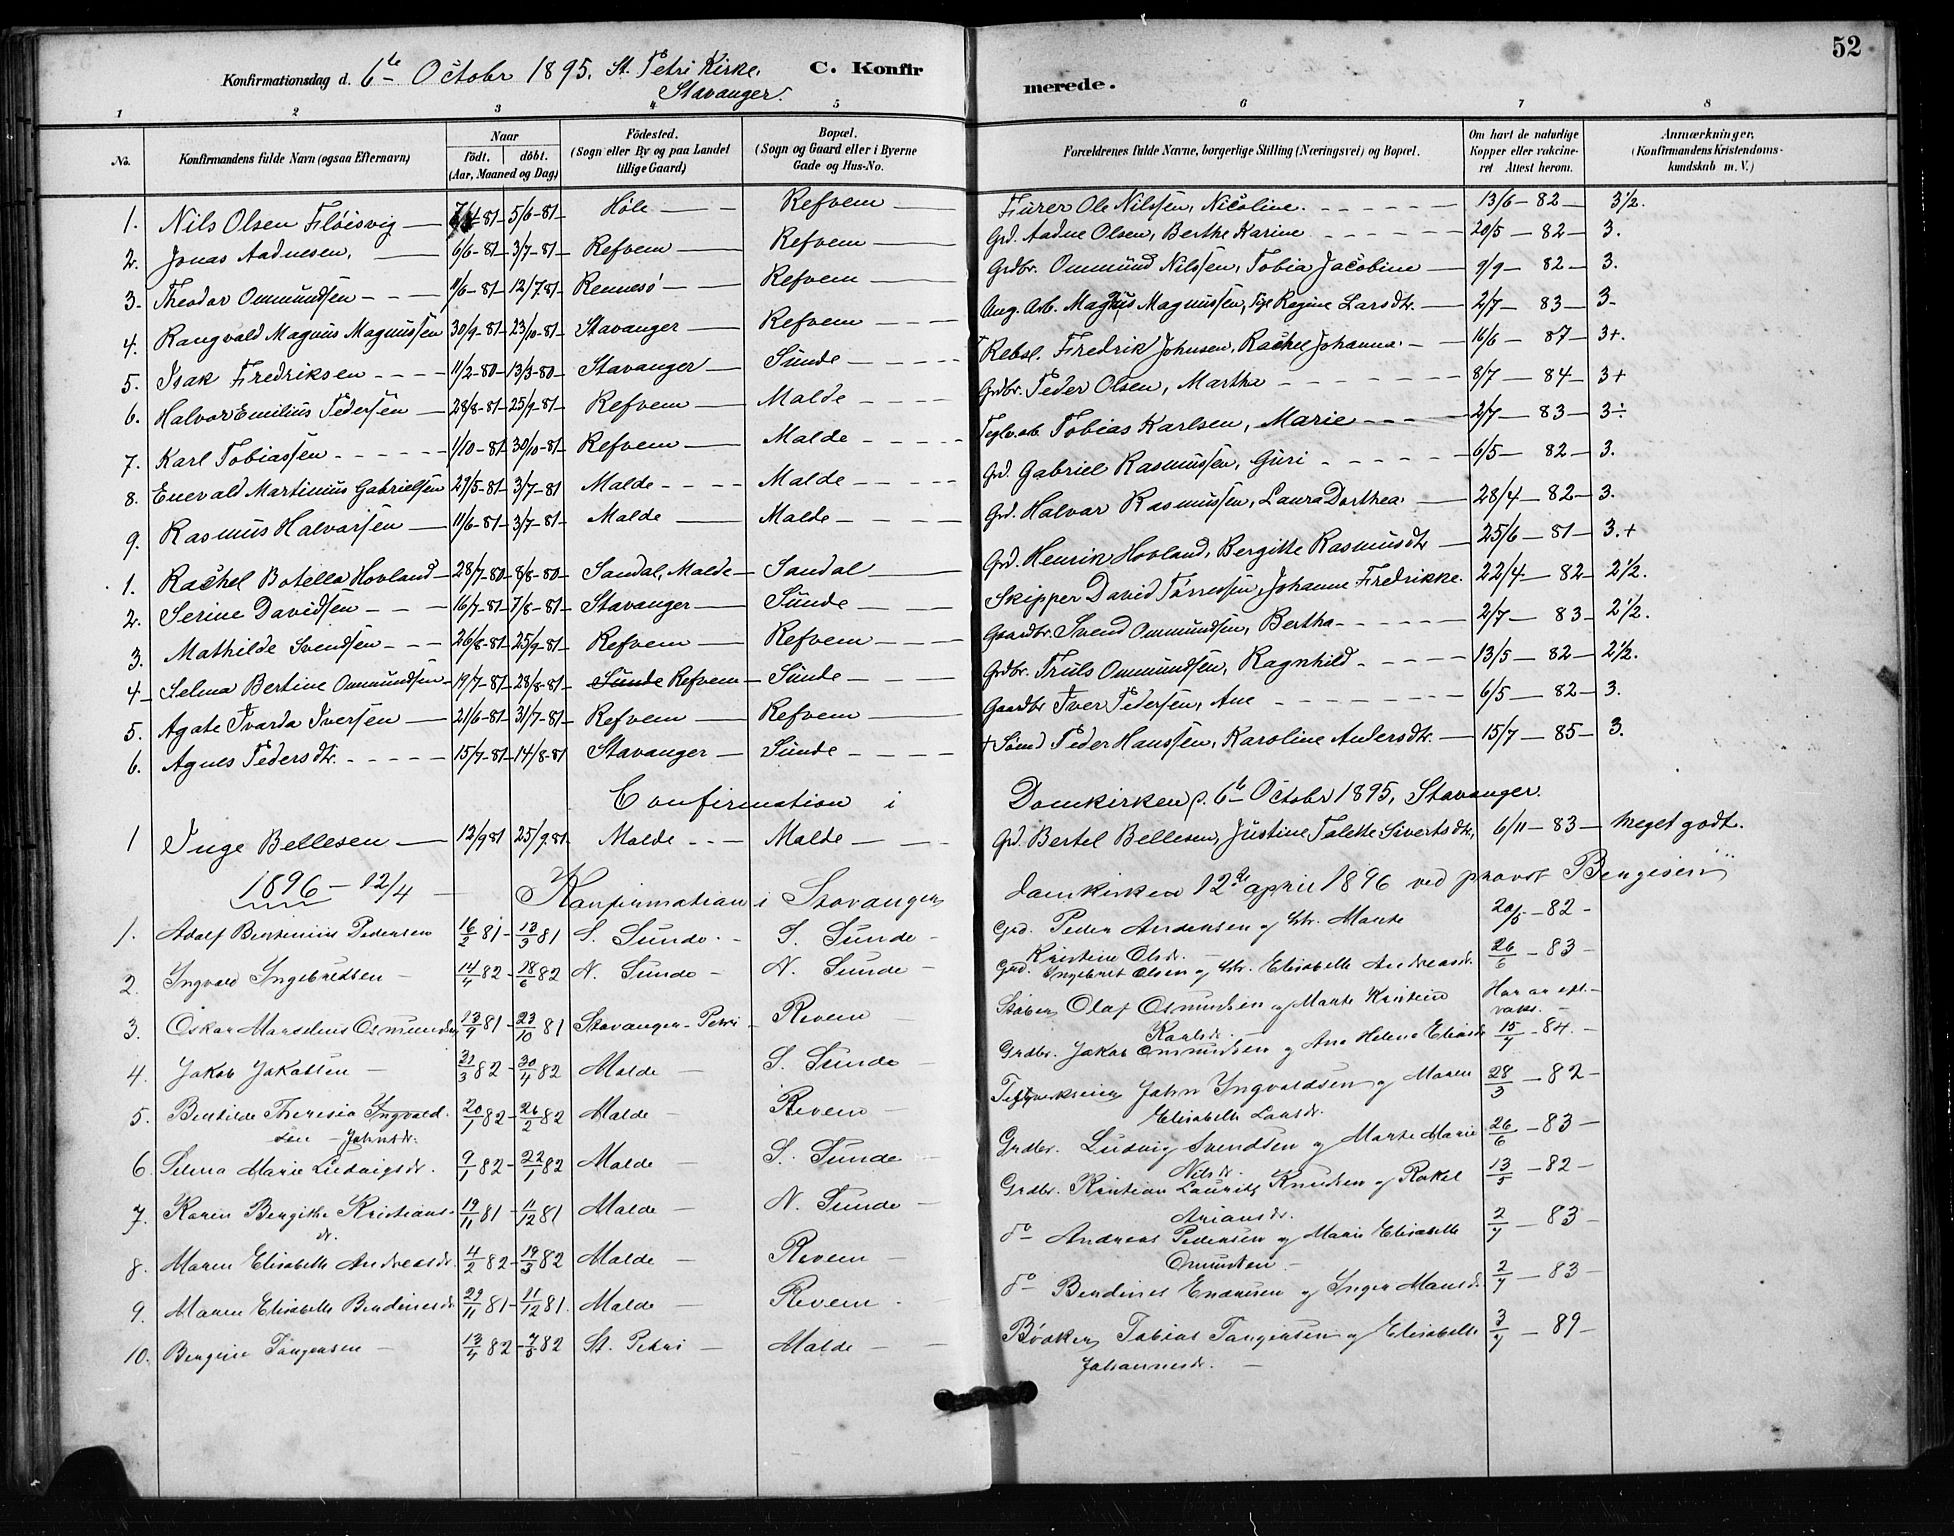 52
Konfirmationsdag d. 6te Octobr 1895. St. Petri Kirke, Stavanger. C. Konfirmerede.
1 2 3 4 5 6 7 8
No. Konfirmandens fulde Navn (ogsaa Efternavn) Naar födt. döbt. (Aar, Maaned og Dag) Födested. (Sogn eller By og paa Landet tillige Gaard) Bopæl. (Sogn og Gaard eller i Byerne Gade og Hus-No. Forældrenes fulde Navne, borgerlige Stilling (Næringsvei) og Bopæl. Om havt de naturlige Kopper eller vakcineret Attest herom. Anmærkninger, (Konfirmandens Kristendomskundskab m. V.)
1. Nils Olsen Fløisvig 5/6-81 Høle Refvem Furer Ole Nilssen, Nicoline. 13/6-82 3½.
2. Jonas Aadnesen, 6/6-81 3/7-81 Refvem Refvem Grd. Aadne Olsen, Berthe Karine 20/5-82 3.
3. Theodor Ommundsen 11/6-81 12/7.81 Rennesö Refvem Grdbr. Ommund Nilssen, Tobia Jacobine 9/9-82 3.
4. Rangvald Magnus Magnussen 30/9-81 23/10-81 Stavanger Refvem Aug. Arb. Magnus Magnussen, Regine Larsdtr. 2/7-83 3-
5. Isak Fredriksen 11/2-80 13/3-80 Stavanger Sunde Rebsl. Fredrik Johnsen, Rachel Johanna. 16/6-87 3+.
6. Halvor Emilius Pedersen 28/8-81 25/9-81 Refvem Malde Grdbr. Peder Olsen, Martha 8/7-84 3+
7. Karl Tobiassen 1/10-81 30/10-81 Refvem Malde Teglv.arb. Tobias Karlsen, Marie 2/7-83 3÷
8. Enevald Martinius Gabrielsen 29/5-81 3/7-81 Malde Malde Grd. Gabriel Rasmussen, Guri 6/5-82 3.
9. Rasmus Halvorsen 11/6-81 3/7-81 Malde Malde Grd. Halvor Rasmussen, Laura Dorthea 28/4-82 3.
1. Rachel Botella Hovland 28/7-80 8/8-80 Sandal, Malde Sandal Grd. Henrik Hovland, Bergitte Rasmusdtr 25/6-81 3.+
2. Serine Davidsen 16/7-81 7/8-81 Stavanger Sunde Skipper David Tørressen, Johanne Fredrikke. 22/4-82 2½.
3. Mathilde Svendsen 26/8-81 25/9-81 Refvem Refvem Gaardbr. Svend Ommundsen, Bertha 2/7-83 2½.
4 Selma Bertine Ommundsen 19/7-81 28/8-81 Sunde Refvem Sunde Grdbr. Truls Ommundsen, Ragnhild 13/5-82 2½.
5. Agate Ivarda Iversen 21/6-81 31/7-81 Refvem Refvem Gaardbr Iver Pedersen, Ane 6/5-82 3.
6. Agnes Pedersdtr. 15/7-81 14/8-81 Stavanger Sunde + Sømd Peder Hanssen, Karoline Andersdtr. 15/7-85 3.
Confirmation i Domkirken d. 6te Octobr 1895, Stavanger.
1 Inge Bellesen 12/9 81 25/9.81 Malde Malde Grd. Bertel Bellesen, Justine Talette Sivertsdtr, 6/11-83 Meget godt.
1896 - 12/4 Konfirmation i Stavanger domkirken 12te april 1896 ved provst Bengtson
1. Adolf Bertinius Pedersen 16/2 81 13/3 81 S. Sunde. S. Sunde Grd. Peder Andersen og Htr. Marte Kristine Olsdr. 20/5-82
2. Ingvald Ingebretsen 14/4 82 18/6 82 N. Sunde N. Sunde Grd. Ingebret Olsen og Htr. Elisabeth Andreasdr. 26/6-83
3. Oskar Marselius Osmundsen 13/9 81 23/10 81 Stavanger Petri Revem Støber Olaf Osmundsen og Marte Kristine Karlsdr. Har
4. Jakob Jakobsen 31/3 82 30/4 82 Malde S. Sunde Grdbr. Jakob Ommundsen og Ane Helene Eliasdr 15/7-84.
5. Bertilde Theresia Ingvaldsen Johnsdr. 20/1 82 26/2 82 Malde Revem Teglverkseier John Ingvaldsen og Maren Elisabeth Larsdr. 28/3-82
6. Selma Marie Ludvigsdr. 9/1 82 22/1 82 Malde S. Sunde Grdbr. Ludvig Svendsen og Marte Marie Nilsdr. 26/6-83
7. Karen Bergithe Kristiansdr. 19/11 81 11/12 81 Malde N. Sunde Grdbr. Kristian Laurits Knudsen og Rakel Ariansdr. 13/5-82
8. Maren Elisabeth Andreasdr. 4/2 82 19/3 82 Malde Revem do Andreas Pedersen og Marie Elisabeth Osmundsen. 2/7-83
9. Maren Elisabeth Berdinesdr. 29/11 81 11/12 81. Malde Revem. do Berdines Endresen og Inger Mansdr. 2/7-83
10. Bergine Tangensen 13/4 82 7/5 82 St. Petri Malde Bødker Tobias Tangensen og Elisabeth Johannesdr. 3/7-89